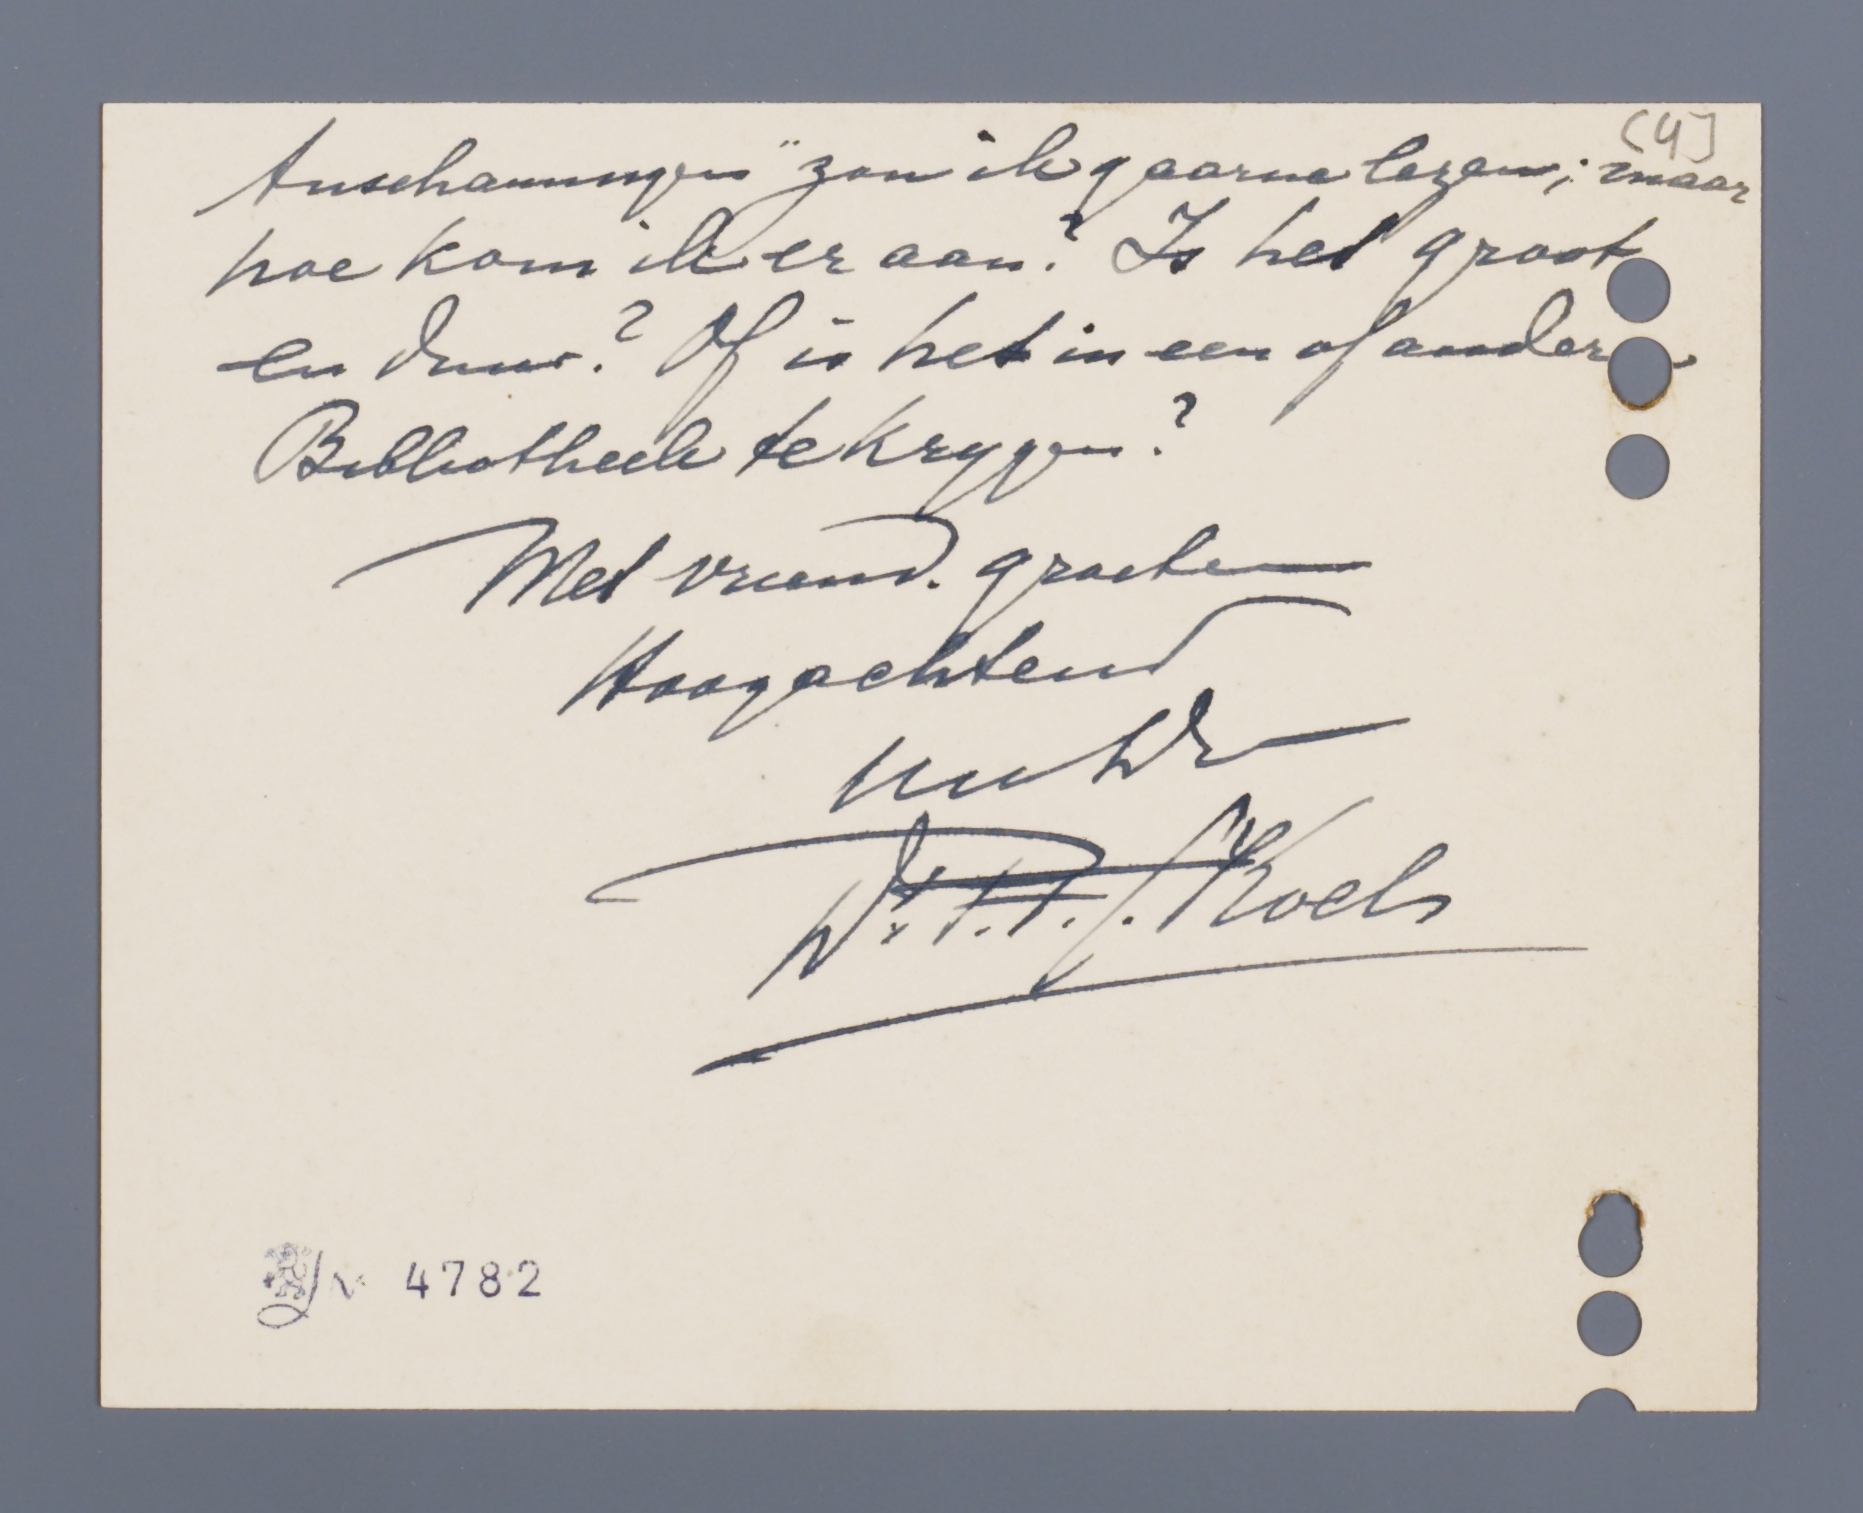 [4]
Anschauungen" zou ik gaarne lezen; maar
hoe kom ik er aan? Is het groot
en duur? Of is het in een of andere
Bibliotheek te krygen?
Met vriend. groeten
Hoogachtend
Uw Dr
Dr. P. H. J. Koets
4782